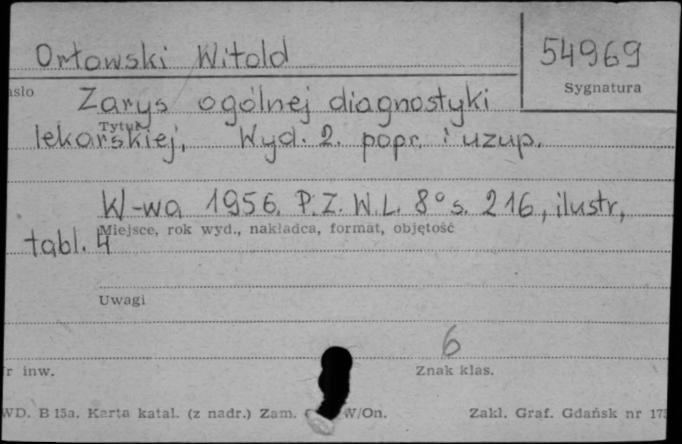 Orłowski Witold
54969
Sygnatura
asło
Zarys ogólnej diagnostyki
Tytuł
lekarskiej, Wyd. 2. popr. i uzup.
W-wa 1956. P.Z.W.L. 8° s. 216, ilustr,
Miejsce, rok wyd., nakładca, format, objętość
tabl. 4
Uwagi
6
r inw.
Znak klas.
WD. B 15a. Karta katal. (z nadr.) Zam. W/On.
Zakł. Graf. Gdańsk nr 175